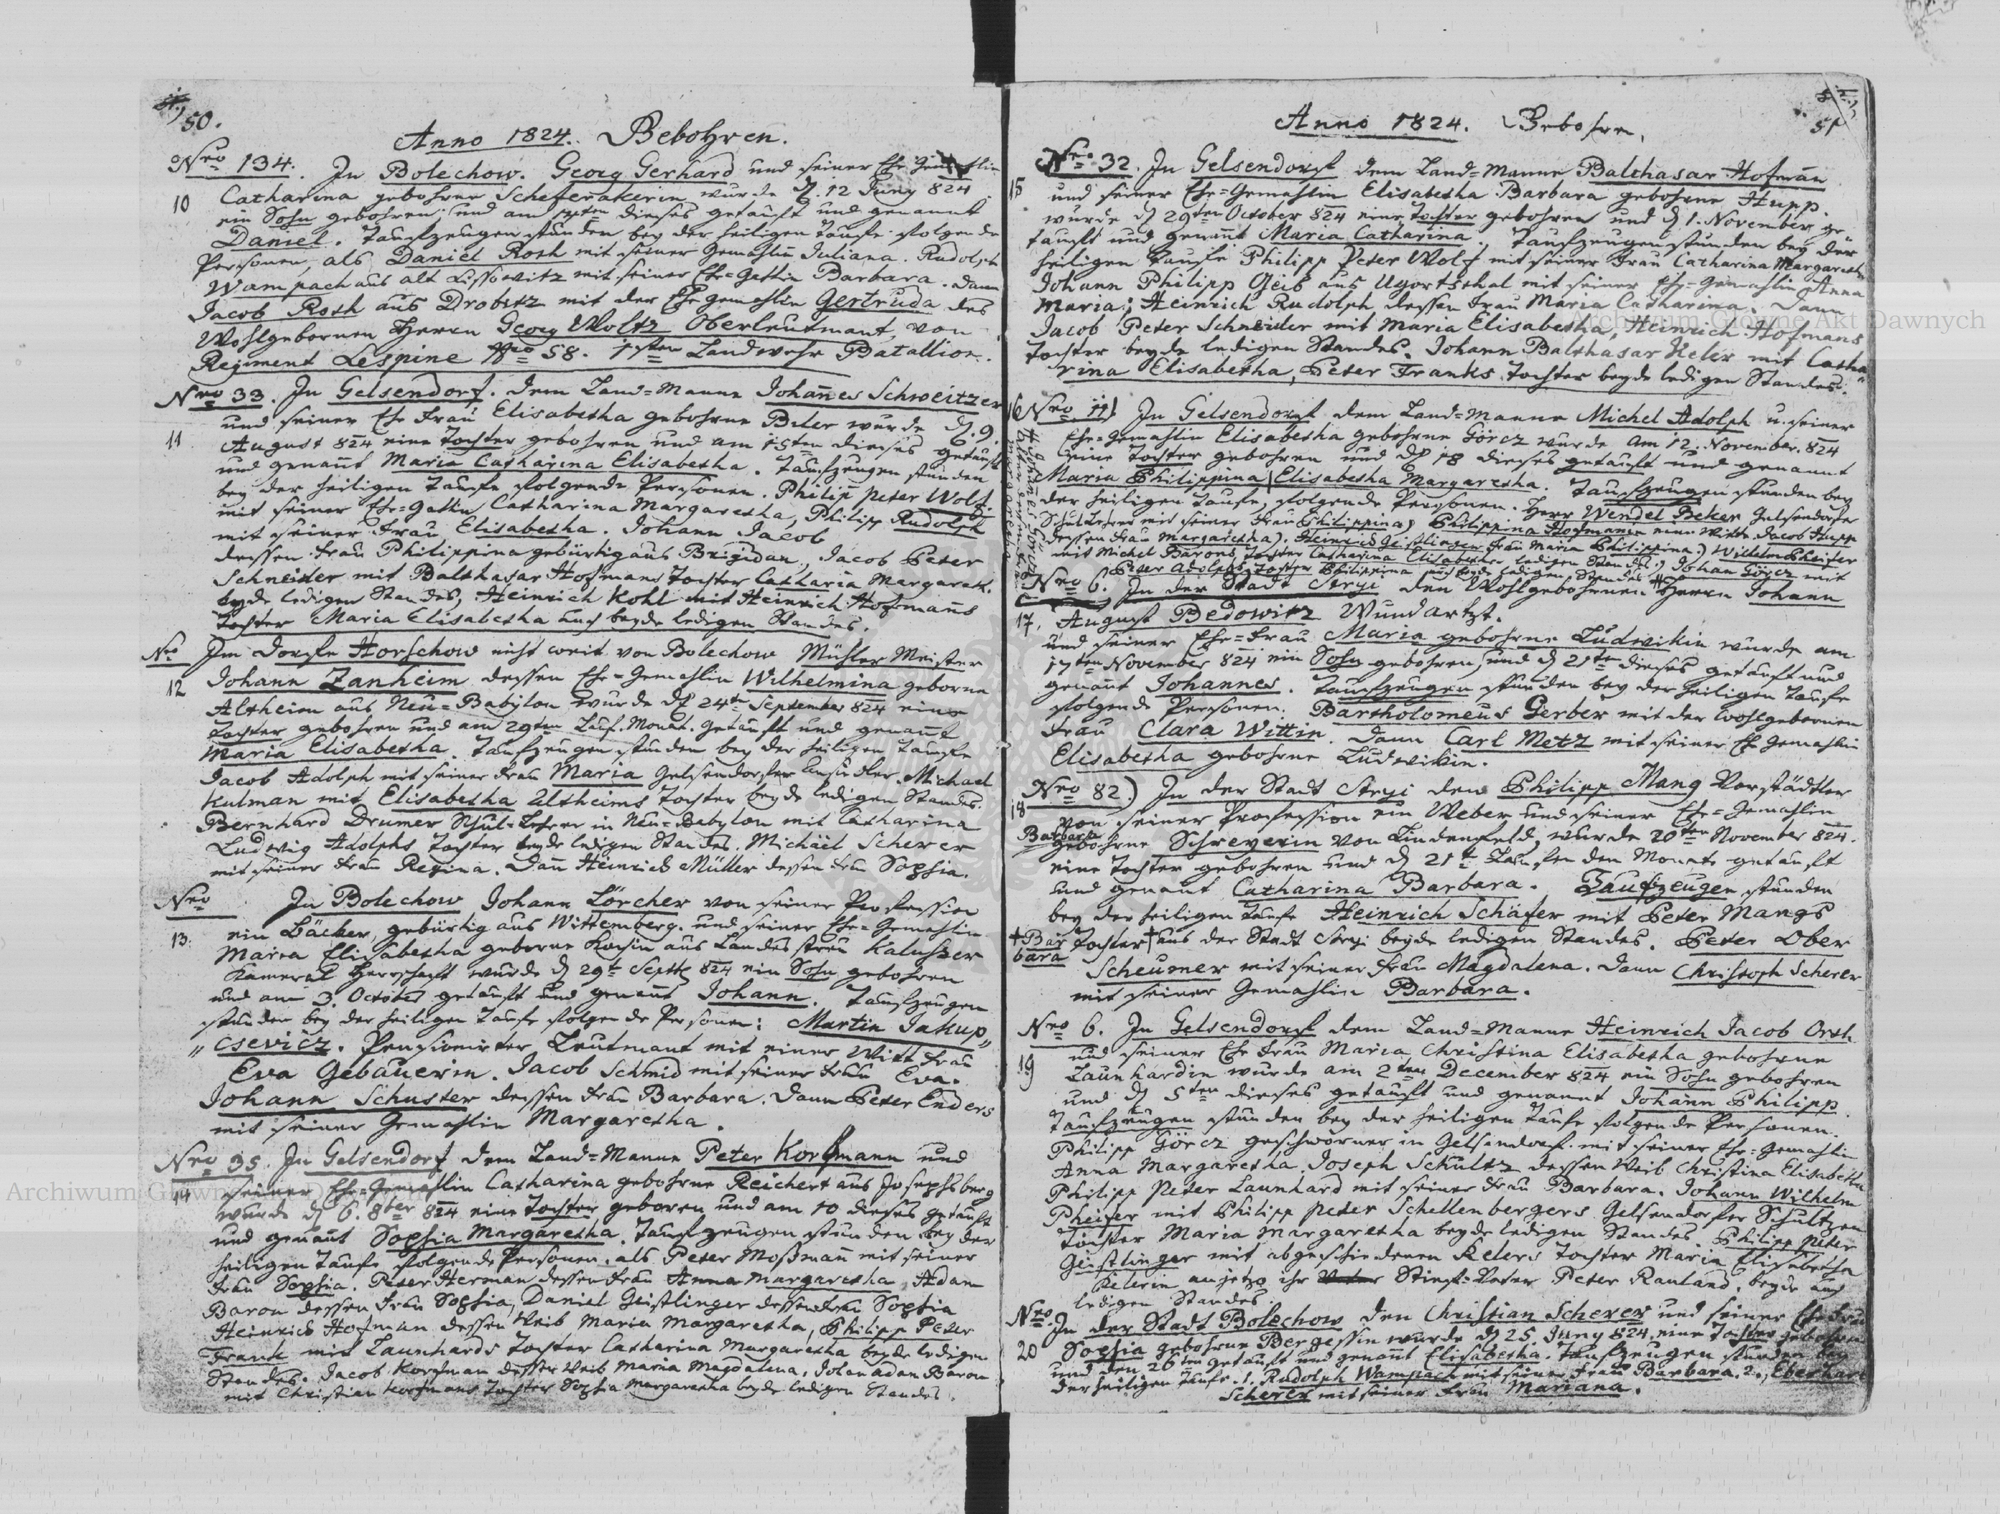 50.
Anno 1824. Gebohren.
Nro 134. In Bolechow. Georg Gerhard und seiner Ehe Gemahlin
10 Catharina gebohrne Scheferakerin wurde d. 12 Juny 824
ein Sohn gebohren und am dieses getauft und genannt
Daniel. Taufzeugen stunden bey der heiligen Taufe folgende
Personen, als Daniel Roth mit seiner Gemahlin Juliana. Rudolph
Wampach aus alt Lissowitz mit seiner Ehe-Gattin Barbara. Dann
Jacob Roth aus Drobitz mit der Ehe gemahlin Gertruda des
Wohlgebornen Herrn Georg Woltz Oberleutnant, von
Regiment Lespine Nro 58. 1ten Landwehr Batallion.
Nro 33. In Gelsendorf. dem Land-Manne Johannes Schweitzer
und seiner Ehe Frau Elisabetha gebohrne Biler wurde d. 9.
11 August 824 eine Tochter gebohren und am 15ten dieses getauft
und genannt Maria Catharina Elisabetha. Taufzeugen stunden
bey der heiligen Taufe folgende Personen. Philip Peter Wolf
mit seiner Ehe-Gattin Catharina Margaretha, Philipp Rudolph
mit seiner Frau Elisabetha. Johann Jacob
dessen Frau Philippina gebürtig aus Brigidau, Jacob Peter
Schneider mit Balthasar Hofmans Tochter Catharia Margareth.
beyde ledigen Standes, Heinrich Kohl mit Heinrich Hofmanns
Tochter Maria Elisabetha auch beyde ledigen Standes.
Nro Im Dorfe Horschow nicht weit von Bolechow Mühler Meister
12 Johann Zanheim dessen Ehe-Gemahlin Wilhelmina geborne
Altheim aus Neu-Babylon wurde d. 24te September 824 eine
Tochter gebohren und am 29ten Lauf. Monat. getauft und genannt
Maria Elisabetha. Taufzeugen stunden bey der heiligen Taufe
Jacob Adolph mit seiner Frau Maria Gelsendorfer Ansiedler. Michael
Kulman mit Elisabetha Altheims Tochter beyde ledigen Standes
Bernhard Drumer Schul-Lehrer in Neu-Babylon mit Catharina
Ludwig Adolphs Tochter beyde ledigen Standes. Michael Scherer
mit seiner Frau Regina. Dan Heinrich Müller dessen Frau Sophia.
Nro In Bolechow Johann Lörcher von seiner Profession
13. ein Bäcker, gebürtig aus Wittemberg. und seiner Ehe-Gemahlin
Maria Elisabetha geborne Kochin aus Landestreu Kalusser
Kameral Herrschaft wurde d. 29t Septb 824 ein Sohn gebohren
und am 3. October getauft und genannt Johann. Taufzeugen
stunden bey der heiligen Taufe folgende Personen: Martin Jakup„
„csevicz. Pensionirter Leutnant mit einer Witt Frau
Eva Gebauerin. Jacob Schmid mit seiner Frau Eva.
Johann Schuster dessen Frau Barbara. Dann Peter Enders
mit seiner Gemahlin Margaretha.
Nro 35. In Gelsendorf dem Land-Manne Peter Korfmann und
14 seiner Ehe-Gemahlin Catharina gebohrne Reichert aus Josephsberg
wurde d. 6. 8ber 824 eine Tochter geboren und am 10 dieses getauft
und genannt Sophia Margaretha. Taufzeugen stunden bey der
heiligen Taufe folgende Personen. als Peter Moßmann mit seiner
Frau Sophia. Peter Herman dessen Frau Anna Margaretha, Adam
Baron dessen Frau Sophia, Daniel Geistlinger dessen Frau Sophia
Heinrich Hofman dessen Weib Maria Margaretha, Philipp Peter
Frank mit Launhards Tochter Catharina Margaretha beyde ledigen
Standes. Jacob Korfman dessen Weib Maria Magdalena. Johan Adam Baron
mit Christian Korfmans Tochter Sophia Margaretha beyde ledigen Standes.
51
Anno 1824. Gebohren.
Nro 32. In Gelsendorf dem Land-Manne Balthasar Hofmann
15 und seiner Ehe-Gemahlin Elisabetha Barbara gebohrne Hupp.
wurde d 29ten October 824 eine Tochter gebohren und d 1. November ge-
tauft und genannt Maria Catharina. Taufzeugen stunden bey der
heiligen Taufe Philipp Peter Wolf mit seiner Frau Catharina Margareth
Johann Philipp Geib aus Ugortschal mit seiner Ehe-Gemahlin Anna
Maria; Heinrich Rudolph dessen Frau Maria Catharina. Dann
Jacob Peter Schneider mit Maria Elisabetha, Heinrich Hofmans
Tochter beyde ledigen Standes. Johann Balthasar Keler mit Catha„
rina Elisabetha, Peter Franks Tochter beyde ledigen Standes.
16 Nro 11) In Gelsendorf dem Land-Manne Michel Adolph u. seiner
Ehe-Gemahlin Elisabetha gebohrne Görcz wurde am 12. November. 824
eine Tochter gebohren und d 18 dieses getauft und genannt
Maria Philippina Elisabetha Margaretha. Taufzeugen stunden bey
der heiligen Taufe, folgende Personen. Herr Wendel Beker Gelsendorfer
Schullehrer mit seiner Frau Philippina) Philippina Hofmann eine Witwe. Jacob Hupp
dessen Frau Margaretha). Heinrich Geistlinger Frau Maria Philippina) Wilhelm Pheifer
mit Michel Barons, Tochter Catharina Elisabetha, ledigen Standes.) Johan Görcz mit
Peter Adolphs Tochter Philippina auch beyde ledigen Standes
Nro 6. In der Stadt Stryi den Wohlgebohrenen Herrn Johann
17. August Bedowitz Wundartzt.
und seiner Ehe-Frau Maria gebohrne Ludwikin wurde am
17ten November 824 ein Sohn gebohren, und d 21te dieses getauft und
genannt Johannes. Taufzeugen stunden bey der heiligen Taufe
folgende Personen. Bartholomeus Gerber mit der wohlgebornen
Frau Clara Wittin. Dann Carl Metz mit seiner Ehe Gemahlin
Elisabetha gebohrne Ludwikin.
Nro 82) In der Stadt Stryi den Philipp Mang Vorstädtler
18 von seiner Profession ein Weber und seiner Ehe-Gemahlin
Barbara gebohrne Schreyerin von Lindenfeld, wurde 20ten November 824.
eine Tochter gebohren und d 21t Laufenden Monats getauft
und genannt Catharina Barbara. Taufzeugen stunden
bey der heiligen Taufe Heinrich Schäfer mit Peter Mangs
+Bar bara Tochter + aus der Stadt Stryi beyde ledigen Standes. Peter Ober
Scheumer mit seiner Frau Magdalena. Dann Christoph Scherer
mit seiner Gemahlin Barbara.
Nro 6. In Gelsendorf dem Land-Manne Heinrich Jacob Orth
19 und seiner Ehe Frau Maria Christina Elisabetha gebohrne
Launhardin wurde am 2ten December 824 ein Sohn gebohren
und d 5ten dieses getauft und genannt Johann Philipp.
Taufzeugen stunden bey der heiligen Taufe folgende Personen.
Philipp Görcz geschworner in Gelsendorf. mit seiner Ehe-Gemahlin
Anna Margaretha. Joseph Schultz dessen Weib Christina Elisabetha
Philipp Peter Launhard mit seiner Frau Barbara. Johann Wilhelm
Pheifer mit Philipp Peter Schellenbergers Gelsendorfer Schultzen
Tochter Maria Margaretha beyde ledigen Standes. Philipp Peter
Geistlinger mit abgeschiedenen Kelers Tochter Maria Elisabetha
Kelerin anjetzo ihr Stief-Vater Peter Rauland. beyde auch
ledigen Standes
Nro. In der Stadt Bolechow den Christian Scherer und seiner Ehe Frau
20 Sophia gebohrne Bergessin wurde d 25. Juny 824. eine Tochter gebohren
und den 26ten getauft und genannt Elisabetha. Taufzeugen stunden bey
der heiligen Taufe. 1. Rudolph Wampach mit seiner Frau Barbara. 2., Eberhart
Scherer mit seiner Frau Mariana.
Archiwum Główne Akt Dawnych
Archiwum Główne Akt Dawnych